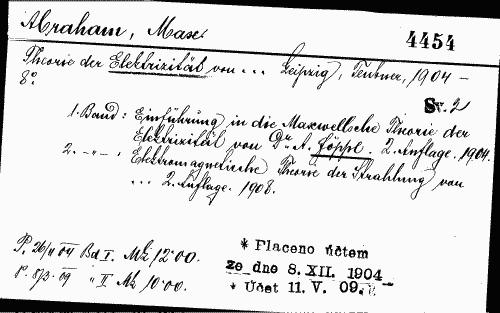 Abraham, Max.
4454
Theorie der Elektrizität von ... Leipzig, Teubner, 1904 -
8°.
Sv. 2
1. Band: Einführung in die Maxwellsche Theorie der
Elektrizität von Dr. A. Föppl. 2. Auflage. 1904.
2. -"- : Elektromagnetische Theorie der Strahlung von
... 2. Auflage. 1908.
P. 26/4 04 Bd I. Mk 12·00.
P. 8/3 09 " II Mk 10·00.
* Placeno účtem
ze dne 8. XII. 1904
* Účet 11. V. 09.